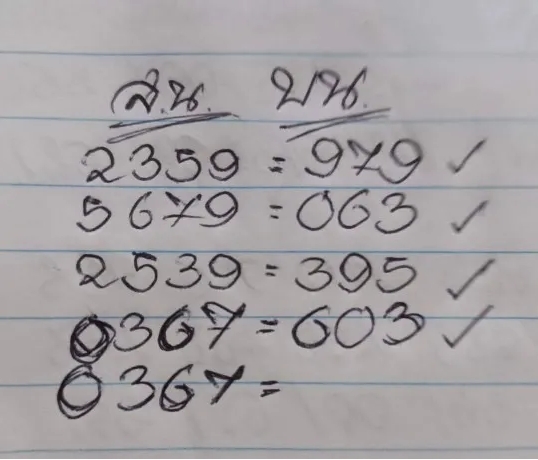 ส.น. บน.
2359 = 979 ✓
5679 = 063 ✓
2539 = 395 ✓
0367 = 603 ✓
0367 =